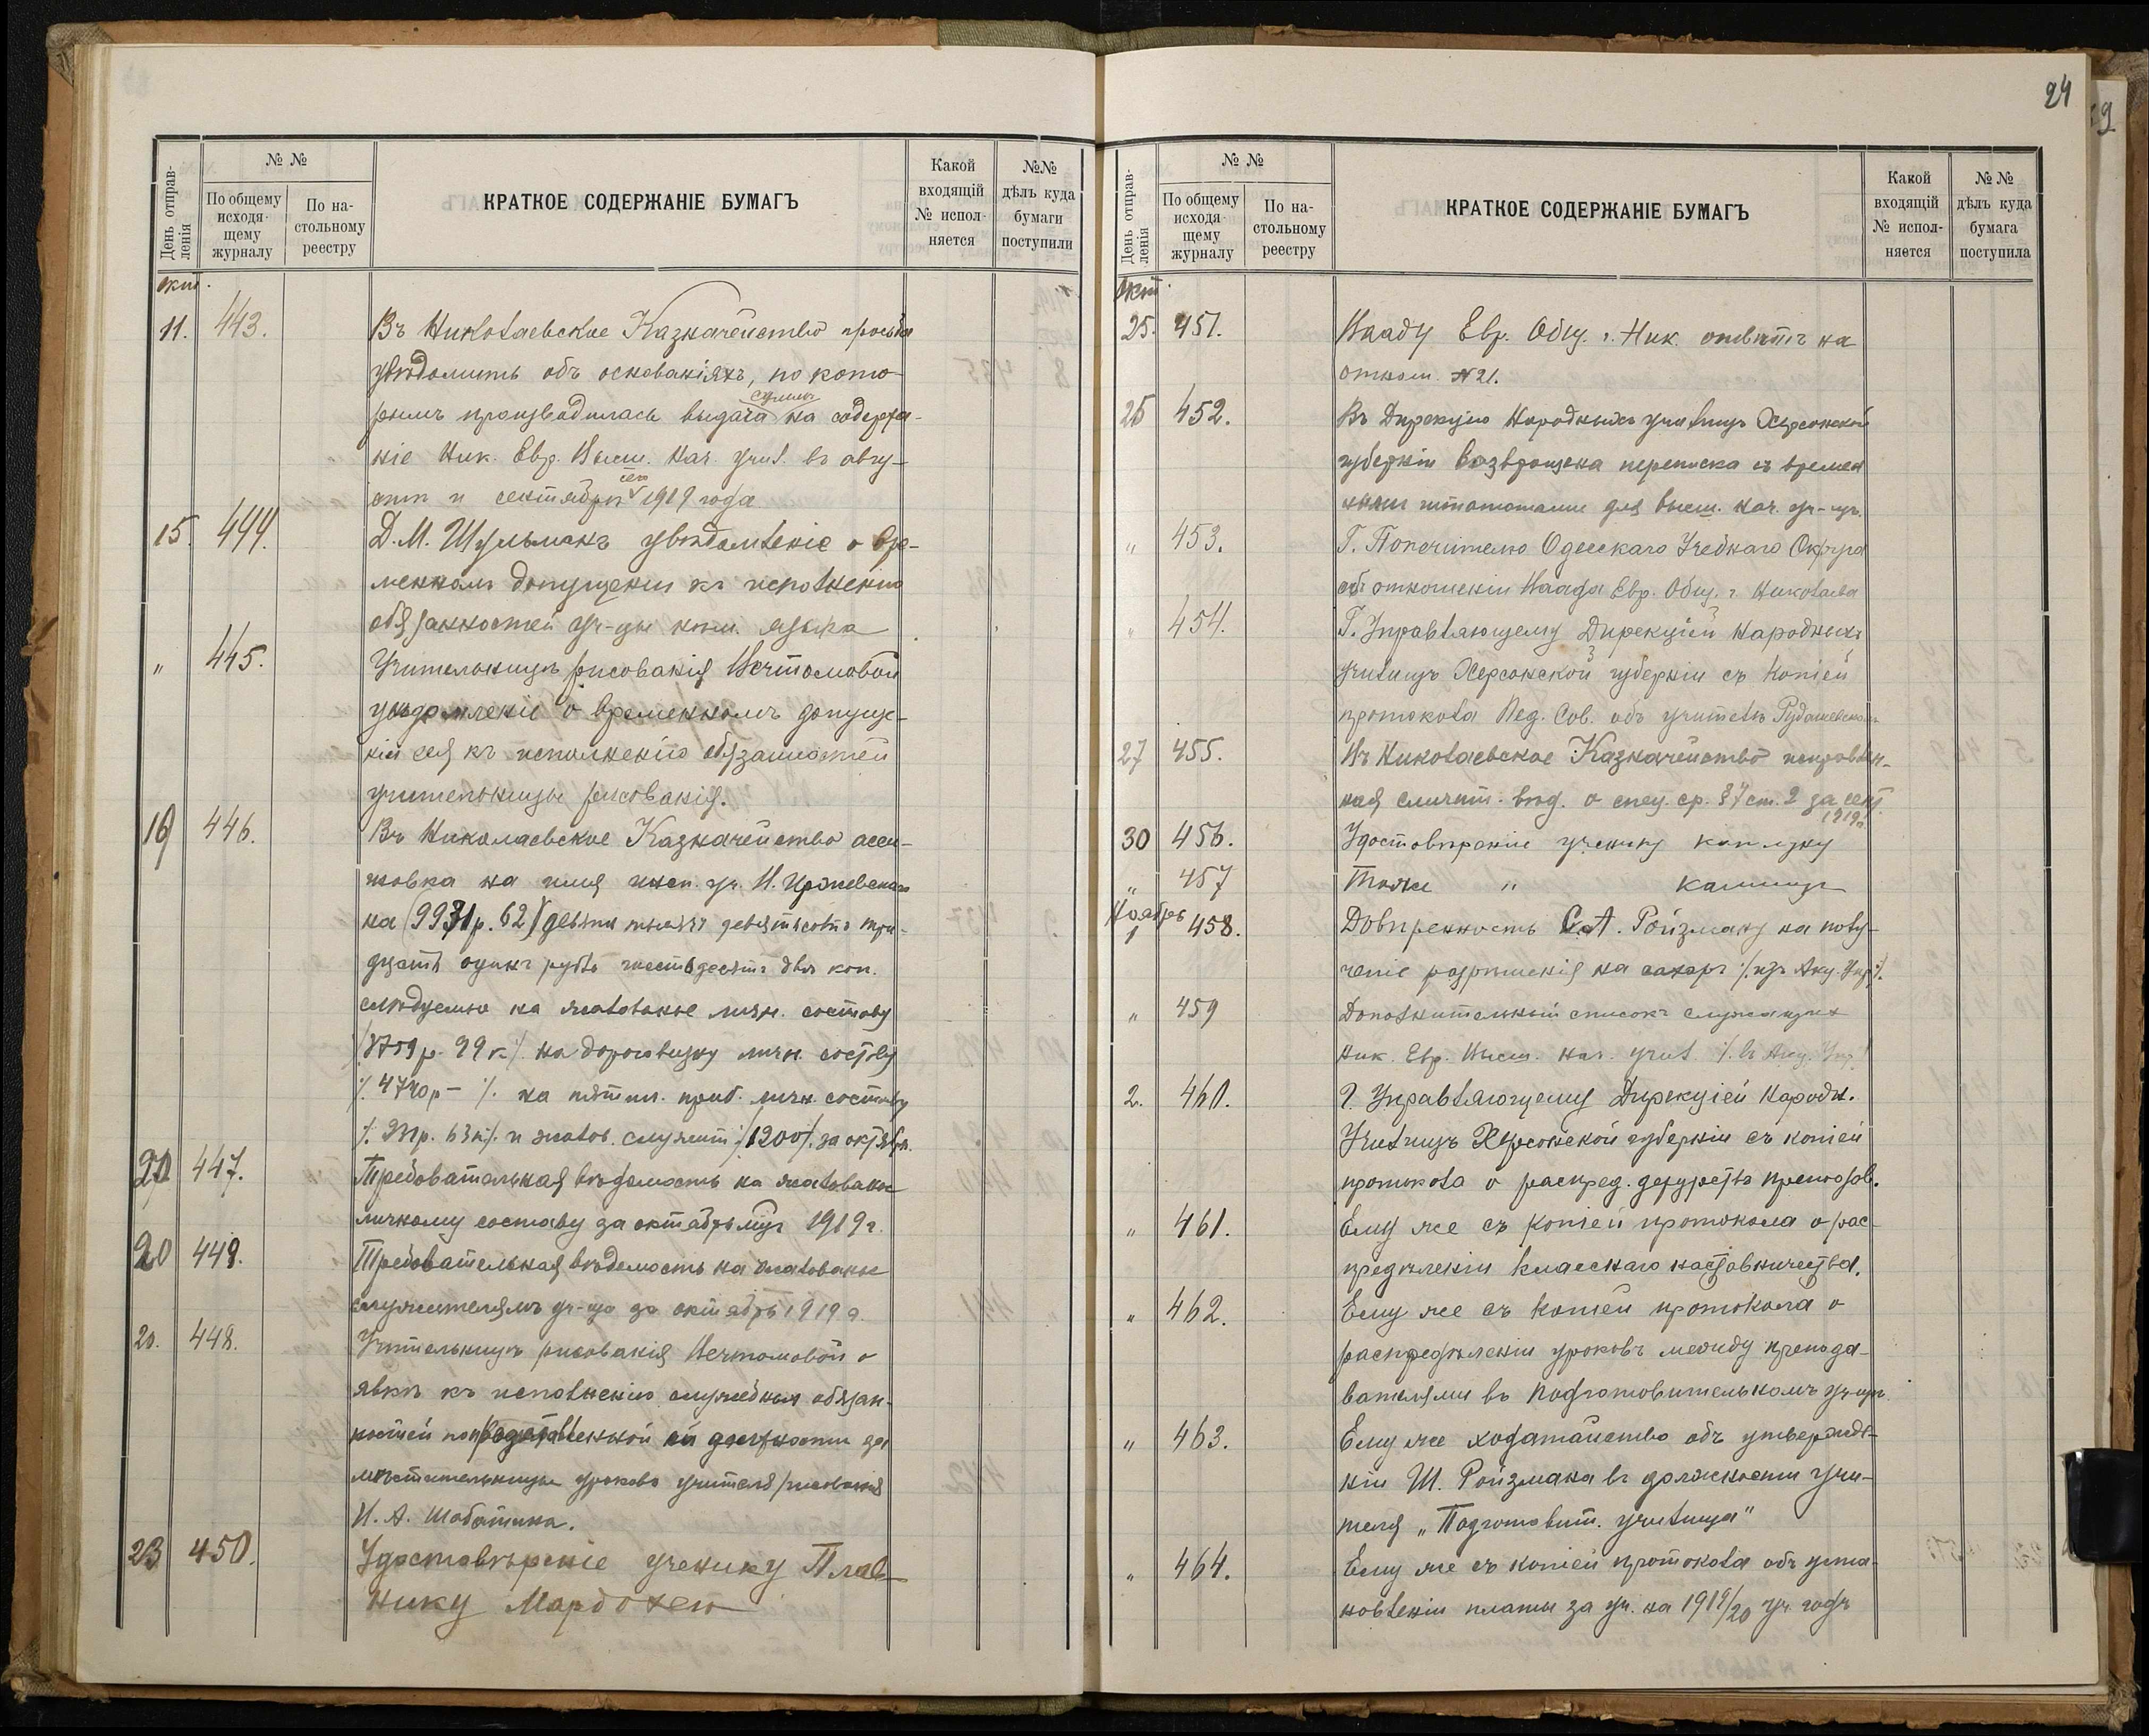 24
День отправленія
№ №
По общему исходящему журналу
По настольному реестру
КРАТКОЕ СОДЕРЖАНІЕ БУМАГЪ
Какой входящій № исполняется
№№ дѣлъ куда бумаги поступили
Окт.
11. 443. Въ Николаевское Казначейство просьба
увѣдомить объ основаніяхъ, по кото-
рымъ производилась выдача суммъ на содержа-
ніе Ник. Евр. Высш. Нач. Учил. въ авгу-
стѣ и сентябрѣ сего 1919 года
15. 444. Д. М. Шульманъ увѣдомленіе о вре-
менномъ допущеніи къ исполненію
обязанностей уч-цы нѣм. языка
" 445. Учительницѣ рисованія Нечтомовой
увѣдомленіе о временномъ допуще-
ніи ея къ исполненію обязанностей
учительницы рисованія.
19 446. Въ Николаевское Казначейство асси-
новка на имя инсп. уч. И.
на (9931р. 62) девять тысячъ девятьсотъ три-
дцать одинъ рубль шестьдесятъ двѣ коп.
слѣдуемые на жалованье личн. составу
на дороговизну личн. составу
/. 4740р – /. на пятил. приб. личн. составу
63к/. и жалов. служит. /1200/. за октябрь.
20 447. Требовательная вѣдомость на жалованье
личному составу за октябрь мѣс. 1919 г.
20 449. Требовательная вѣдомость на жалованье
служителямъ уч-ща за октябрь 1919 г.
20. 448. Учительницѣ рисованія Нечтомовой о
явкѣ къ исполненію служебныхъ обязан-
ностей по предоставленной ей должности за-
мѣстительницы уроковъ учителя рисованія
И. А. Шабатина.
23 450. Удостовѣреніе ученику Плав-
нику Мардохею
День отправленія
№ №
По общему исходящему журналу
По настольному реестру
КРАТКОЕ СОДЕРЖАНІЕ БУМАГЪ
Какой входящій № исполняется
№ № дѣлъ куда бумага поступила
Окт.
25. 451. Вааду Евр. Общ. г. Ник. отвѣтъ на
отнош. №21.
25 452. Въ Дирекцію Народныхъ училищъ Херсонской
губерніи возвращена переписка съ времен
ными штатами для высш. нач. уч-щъ.
" 453. Г. Попечителю Одесскаго Учебнаго Округа
объ отношеніи Ваада Евр. Общ. г. Николаева
" 454. Г. Управляющему Дирекціей Народныхъ
училищъ Херсонской губерніи съ копіей
протокола Пед. Сов. объ учителѣ
27 455. Въ Николаевское Казначейство исправлен-
ная сличит. вѣд. о спец. ср. §7 ст. 2 за сент.
1919г.
30 456. Удостовѣреніе ученику Каплуну
" 457 Тоже "
Ноябрь
1 458. Довѣренность С. А. Ройзману на полу-
ченіе разрѣшенія на сахаръ /. изъ Акц. Упр /.
" 459 Дополнительный списокъ служащихъ
Ник. Евр. Высш. нач. учил. /. въ Акц. Упр/
2. 460. Г. Управляющему Дирекціей Народн.
Училищъ Херсонской губерніи съ копіей
протокола о распред. дежурства преподав.
" 461. Ему же съ копіей протокола о рас-
предѣленіи класснаго наставничества.
" 462. Ему же съ копіей протокола о
распредѣленіи уроковъ между препода-
вателями въ Подготовительномъ уч-щѣ.
" 463. Ему же ходатайство объ утвержде-
ніи Ш. Ройзмана въ должности учи-
теля „Подготовит. училища"
" 464. Ему же съ копіей протокола объ уста-
новленіи платы за уч. на 1919/20 уч. годъ